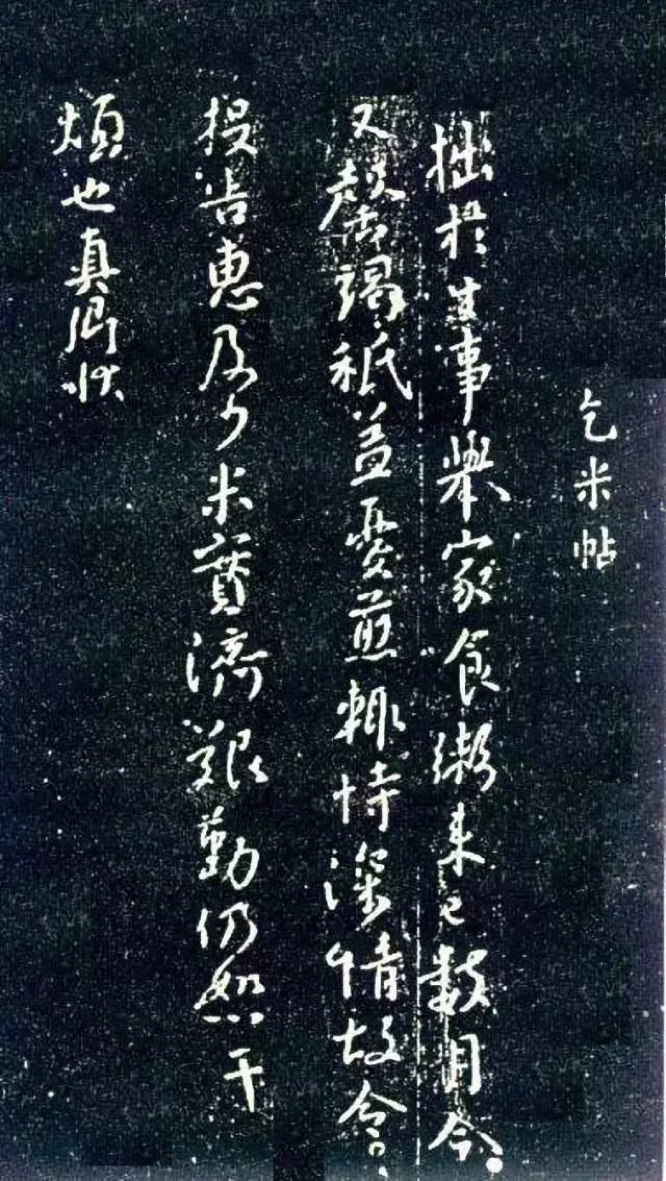 乞米帖
拙於生事舉家食粥來已數月今
又罄竭秖益憂煎輒恃深情故令
投告惠及少米實濟艱勤仍恕干
煩也真卿狀